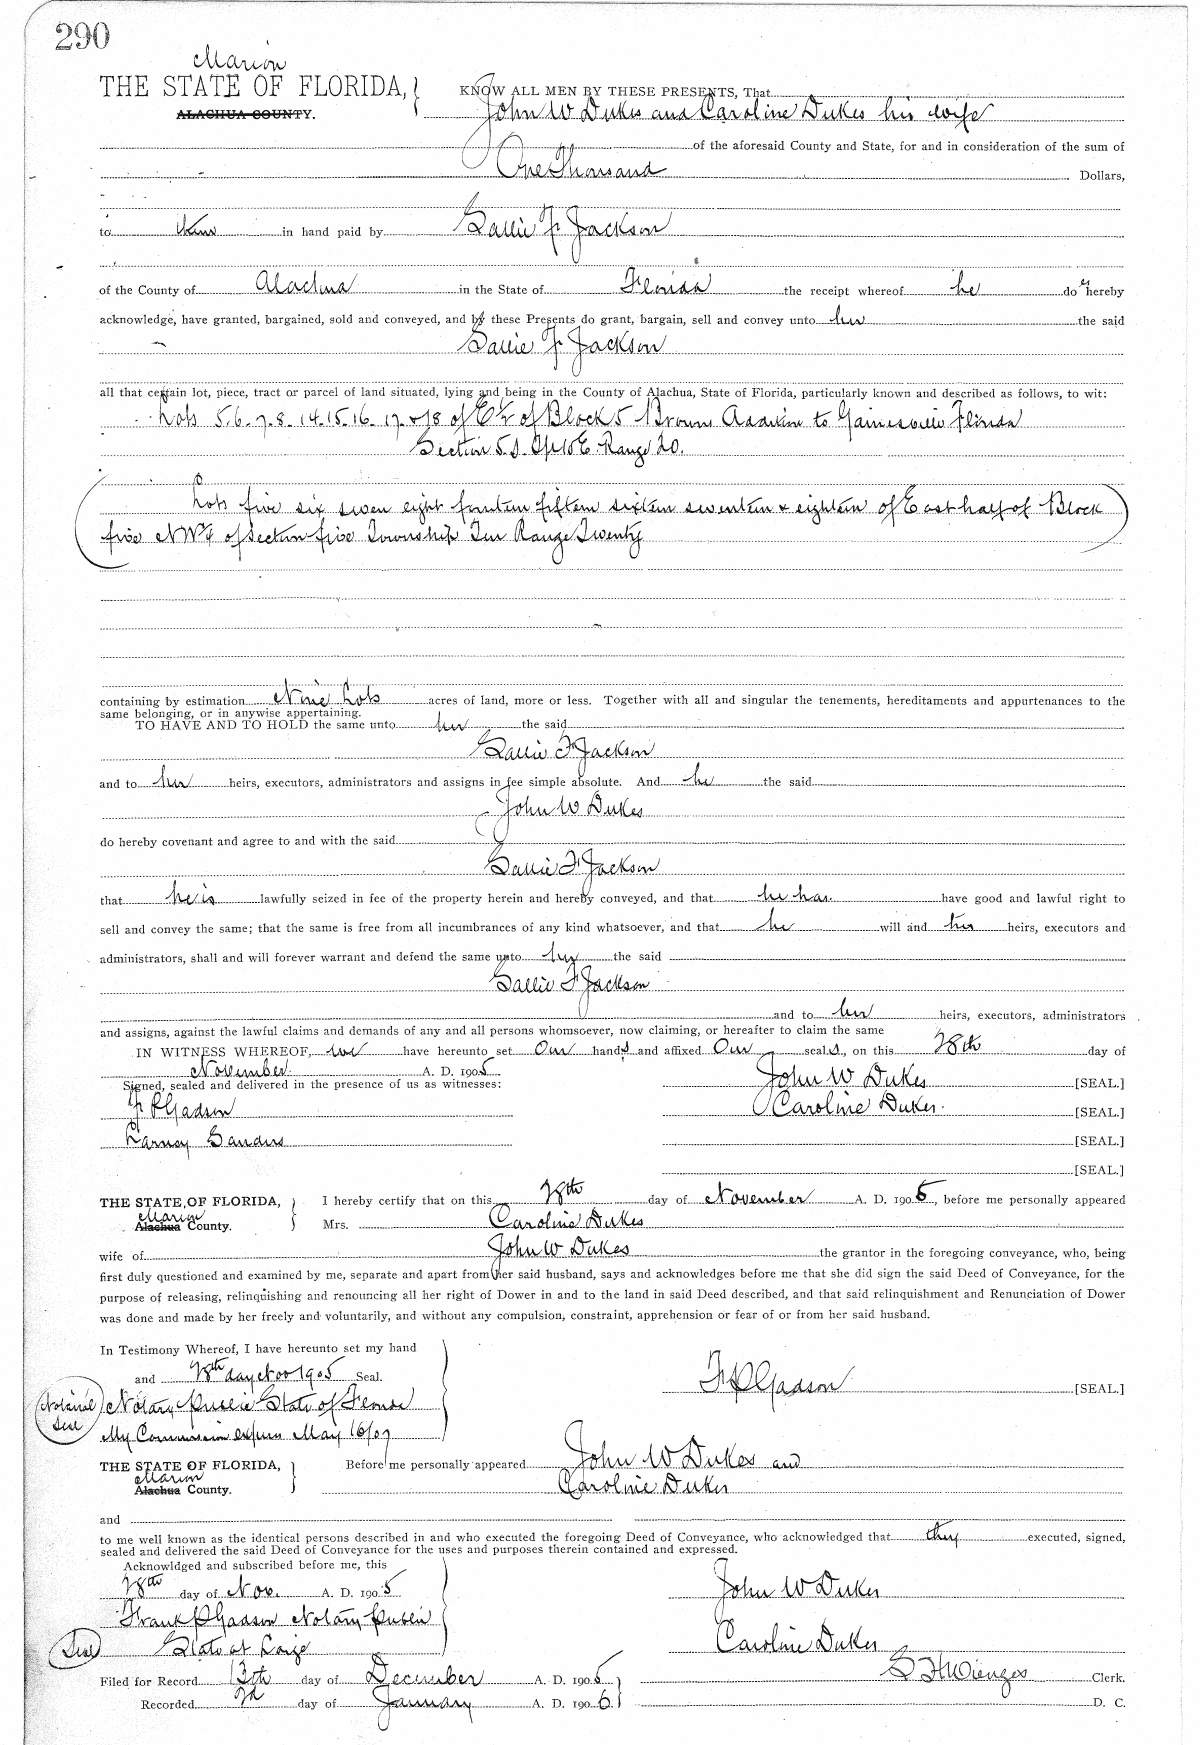 290
Marion
THE STATE OF FLORIDA, KNOW ALL MEN BY THESE PRESENTS, That
ALACHUA COUNTY. John W Dukes and Caroline Dukes his wife
of the aforesaid County and State, for and in consideration of the sum of
One Thousand Dollars,
to him in hand paid by Sallie F Jackson
of the County of Alachua in the State of Florida the receipt whereof he does hereby
acknowledge, have granted, bargained, sold and conveyed, and by these Presents do grant, bargain, sell and convey unto her the said
Sallie F Jackson
all that certain lot, piece, tract or parcel of land situated, lying and being in the County of Alachua, State of Florida, particularly known and described as follows, to wit:
Lots 5. 6. 7. 8. 14. 15. 16. 17. & 18 of E 1/2 of Block 5 Browns Addition to Gainesville Florida
Section 5. S. Tp 10 E. Range 20.
Lots five six seven eight fourteen fifteen sixteen seventeen & eighteen of East half of Block
five NW4 of Section five Township Ten Range Twenty
containing by estimation Nine Lots acres of land, more or less. Together with all and singular the tenements, hereditaments and appurtenances to the
same belonging, or in anywise appertaining.
TO HAVE AND TO HOLD the same unto her the said
Sallie F Jackson
and to her heirs, executors, administrators and assigns in fee simple absolute. And he the said
John W Dukes
do hereby covenant and agree to and with the said
Sallie F Jackson
that he is lawfully seized in fee of the property herein and hereby conveyed, and that he has have good and lawful right to
sell and convey the same; that the same is free from all incumbrances of any kind whatsoever, and that he will and his heirs, executors and
administrators, shall and will forever warrant and defend the same unto her the said
Sallie F Jackson
and to her heirs, executors, administrators
and assigns, against the lawful claims and demands of any and all persons whomsoever, now claiming, or hereafter to claim the same
IN WITNESS WHEREOF, we have hereunto set Our hands and affixed Our seals, on this 28th day of
November A. D. 1905 John W Dukes [SEAL.]
Signed, sealed and delivered in the presence of us as witnesses:
F P Gadson Caroline Dukes. [SEAL.]
Larney Sanders [SEAL.]
[SEAL.]
THE STATE OF FLORIDA, I hereby certify that on this 28th day of November A. D. 1905, before me personally appeared
Marion
Alachua County. Mrs. Caroline Dukes
wife of John W Dukes the grantor in the foregoing conveyance, who, being
first duly questioned and examined by me, separate and apart from her said husband, says and acknowledges before me that she did sign the said Deed of Conveyance, for the
purpose of releasing, relinquishing and renouncing all her right of Dower in and to the land in said Deed described, and that said relinquishment and Renunciation of Dower
was done and made by her freely and voluntarily, and without any compulsion, constraint, apprehension or fear of or from her said husband.
In Testimony Whereof, I have hereunto set my hand
and 28th day Nov 1905 Seal. F P Gadson [SEAL.]
Notarial Seal
Notary Public State of Florida
My Commission expires May 16/07
THE STATE OF FLORIDA, Before me personally appeared John W Dukes and
Marion
Alachua County. Caroline Dukes
and
to me well known as the identical persons described in and who executed the foregoing Deed of Conveyance, who acknowledged that they executed, signed,
sealed and delivered the said Deed of Conveyance for the uses and purposes therein contained and expressed.
Acknowldged and subscribed before me, this
28th day of Nov. A. D. 1905 John W Dukes
Frank P Gadson Notary Public
Seal State at Large Caroline Dukes
Filed for Record 13th day of December A. D. 1905 S H Wienges Clerk.
Recorded 2d day of January A. D. 1906 D. C.